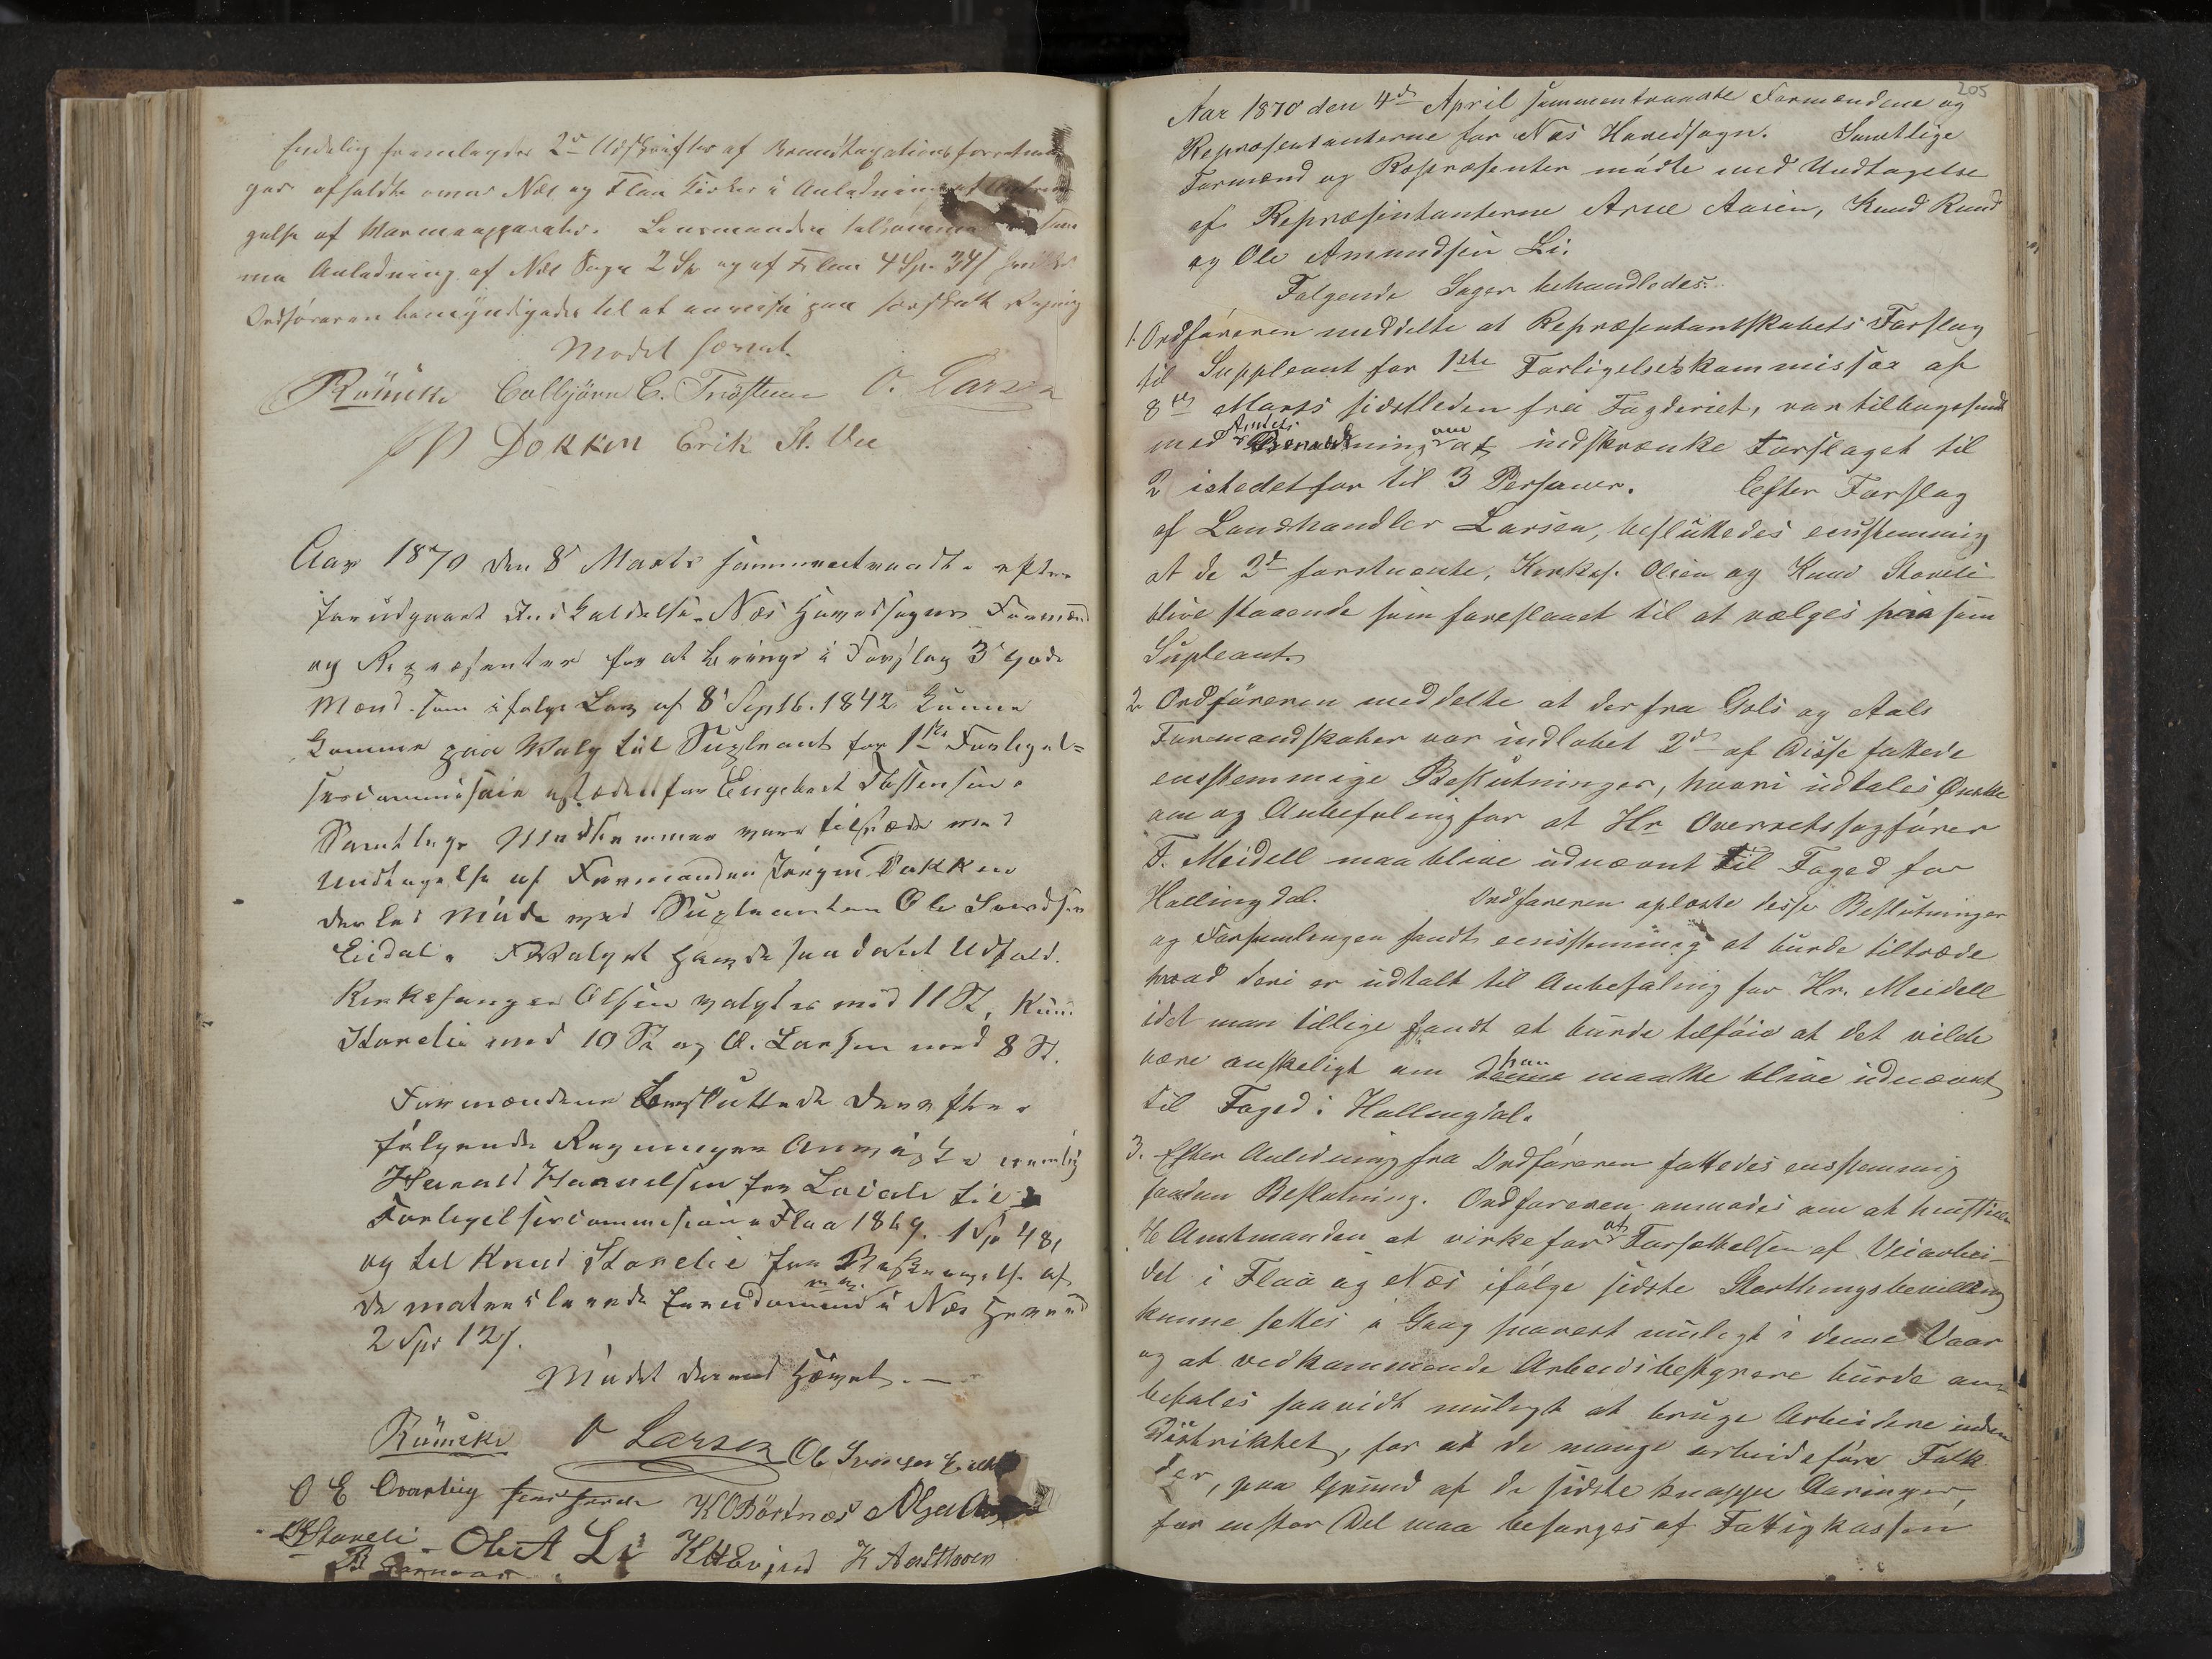 Endelig fremlagdes 2de Udskrifter af Brandtaxationsforretnin
ger afholdte over Næs og Flaa Kirker i Anledning af
gelse af Varmeapparater. Lensmanden tilkommer
ma Anledning af Næs Sogn 2 Sp og af Flaa 4 Sp. 34 s hvilket
Ordføreren bemyndigedes til at anvise paa særskilt Regning
Mødet hævet.
Rømcke Colbjørn C. Trøstem O. Larsen
Dokken Erik
Aar 1870 den 8de Marts sammentraadte efter
forudgaaet Indkaldelse Næs Hovedsogns Formænd
og Repræsenter for at bringe i Forslag 3de gode
Mænd som ifølge Lov af 8de Septb. 1842 kunne
komme paa Valg til Supleant for 1ste Forligel=
sescommisair istedetfor Engebret Tostensen.
Samtlige Medlemmer vare tilstede med
Undtagelse af Formanden Jørgen Dokken
der lod møde ved Supleanten Ole Svendsen
Eidal. Valget havde saadant Udfald.
Kirkesanger Olsen valgtes med 11 St, Knud
Stavelie med 10 St og O. Larsen med 8 St.
Formændene besluttede derefter
følgende Regninger anvist nemlig
Harald Haavelsen for Locale til
Forligelsescommisionen Flaa 1869. 1 Sp 48 s
og til Knud Stavelie for Beskrivelse af
de matrikulerede Eiendomme m. v. i Næs Hoved
2 Spd 12 s.
Mødet dermed hævet. —
Rømcke O Larsen Ole Svensen Eidal
O E Overlie K O Børtnæs
K Staveli - Ole A Li K H Evjen K Aasthoven
205
Aar 1870 den 4de April sammentraadte Formændene og
Repræsentanterne for Næs Hovedsogn. Samtlige
Formænd og Repræsenter mødte med Undtagelse
af Repræsentanterne Arne Aasen, Knud Rund
og Ole Amundsen Li.
Følgende Sager behandledes:
1. Ordføreren meddelte at Repræsentantskabets Forslag
til Suppleant for 1ste Forligelseskommissær af
8de Marts sidstleden fra Fogderiet, var tilbagesendt
med Anmodning om at indskrænke Forslaget til
2 istedetfor til 3 Personer. Efter Forslag
af Landhandler Larsen, besluttedes eenstemmig
at de 2de førstnævnte, Kirkes. Olsen og Knud Staveli
blive staaende som foreslaaet til at vælges paa som
Supleant.
2 Ordføreren meddelte at der fra Gols og Aals
Formandskaber var indløbet 2de af disse fattede
enstemmige Beslutninger, hvori udtales Ønske
om og Anbefaling for at Hr Overretssagfører
F. Meidell maa blive udnævnt til Foged for
Hallingdal. Ordføreren oplæste disse Beslutninger
og Forsamlingen fandt eenstemmig at burde tiltræde
hvad deri er udtalt til Anbefaling for Hr. Meidell
idet man tillige fandt at burde tilføie at det vilde
være ønskeligt om han maatte blive udnævnt
til Foged i Hallingdal.
3. Efter Anledning fra Ordføreren fattedes enstemmig
saadan Beslutning. Ordføreren anmodes om at henstille
til Amtmanden at virke for at Forsættelsen af Veiarbei-
det i Flaa og Næs ifølge sidste Storthingsbevilling
kunne settes i Gang snarest muligt i denne Vaar
og at vedkommende Arbeidsbestyrere burde an=
befales saavidt muligt at bruge Arbeidere inden
Distriktet, for at de mange arbeidsføre Folk
der, paa Grund af de sidste knappe Aaringer,
for en stor Del maa besørges af Fattigkassen